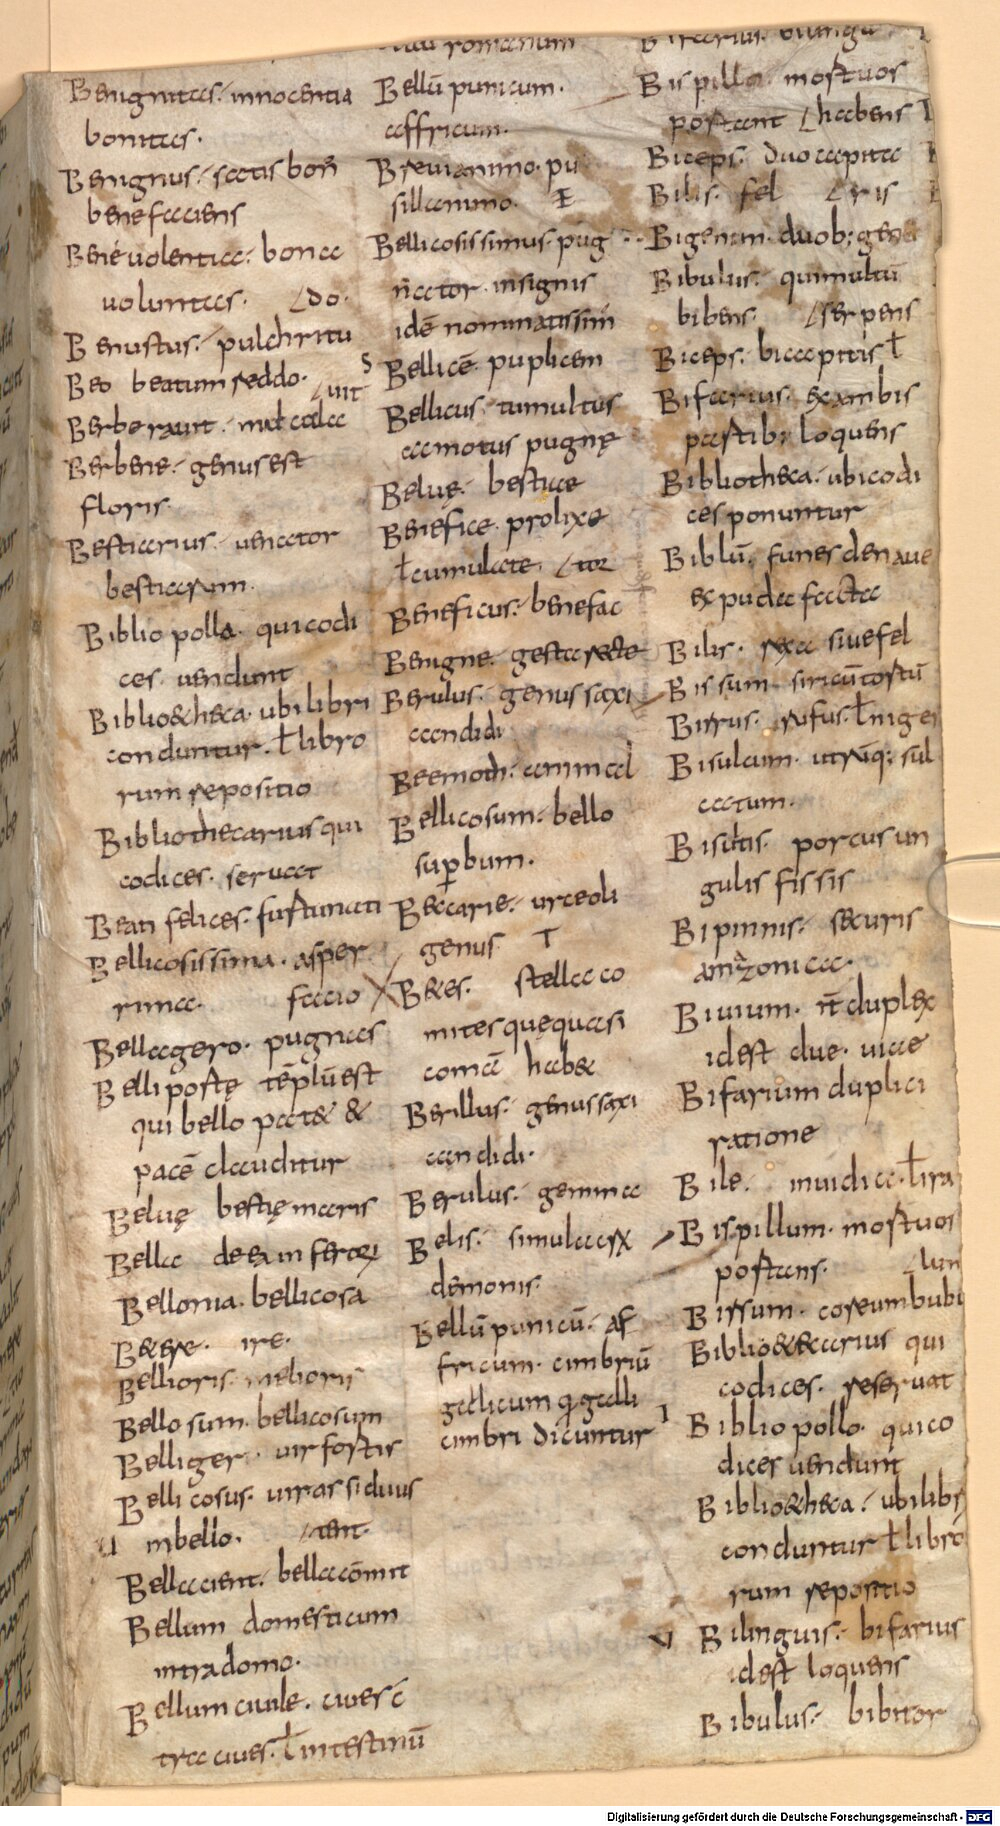 Benignitas. innocentia
bonitas.
Benignus. satis bon̄
benefaciens
Beneuolentia. bona
uoluntas. do.
Benustus. pulchritu
Beo beatum reddo.
uit
Berberauit. mulcalca
Berbene. genus est
floris.
Bestiarius. uenator
bestiarum.
Bibliopolla. qui codi
ces. uendunt
Biblio&heca. ubi libri
conduntur. ł libro
rum repositio
Bibliothecarius qui
codices. seruat
Beati felices. fortunati
Bellicosissima. asper
rima. facio
Bellagero. pugnas
Belli postę tēplū est
qui bello pat& &
pacē clauditur
Beluę bestię maris
Bella dea inferorum
Bellona. bellicosa
B&ere. ire.
Bellioris. meliorii
Bellosum. bellicosum
Belliger. uir fortis
Bellicosus. uir assiduus
in bello. ant.
Bellacient. bella cōmit
Bellum domesticum
intra domo.
Bellum ciuile. ciues c̄
tra ciues. ł intestinū
romanum
Bellū punicum.
affricum.
Breuianimo. pu
sillanimo.
Bellicosissimus. pug
nator. insignis
idē nominatissim̄
Bellicē puplicem
Bellicus. tumultus
a motus pugnę
Beluę. bestiae
Benefice. prolixe
ł cumulate. tor
Beneficus. benefac
Benigne. gesta recte
Berulus. genus saxi
candidi
Beemoth. animal
Bellicosum. bello
suꝑbum.
Beccarie. urceoli
genus
B&es. stella co
mites quę quasi
comā hab&
Berillus. genus saxi
candidi.
Berulus. gemma
Belis. simulacrx
demonis.
Bellū punicū. af
fricum. cimbriū
gallicum ꝗ galli
cimbri dicuntur
Bifarius. bilingu
Bispilla. mortuos
portant habens
Biceps. duo capita
Bilis. fel ris
Bigenim. duob; gene
Bibulus. qui multū
bibens. serpens
Biceps. bicapitis ł
Bifarius. ex ambis
partib; loquens
Bibliotheca. ubi codi
ces ponuntur
Biblū. funes de naue
ex puda facta
Bilis. rixa siue fel
Bissum siricū tortū
Birrus. rufus. ł nige
Bisulcum. utrūq; sul
catum.
Bisulcis. porcus un
gulis fissis
Bipinnis. securis
amazonica.
Biuium. it̄ duplex
id est due. uiae
Bifarium duplici
ratione
Bile. inuidia. ł ira
Bispillum. mortuos
portans. lun
Birrum. coreum bubu
Biblio&ecarius qui
codices. reseruat
Bibliopollo. qui co
dices uendunt
Biblio&heca. ubi libr
conduntur ł libro
rum repositio
Bilinguis. bifarius
id est loquens
Bibulus. bibitor
Digitalisierung gefördert durch die Deutsche Forschungsgemeinschaft - DFG